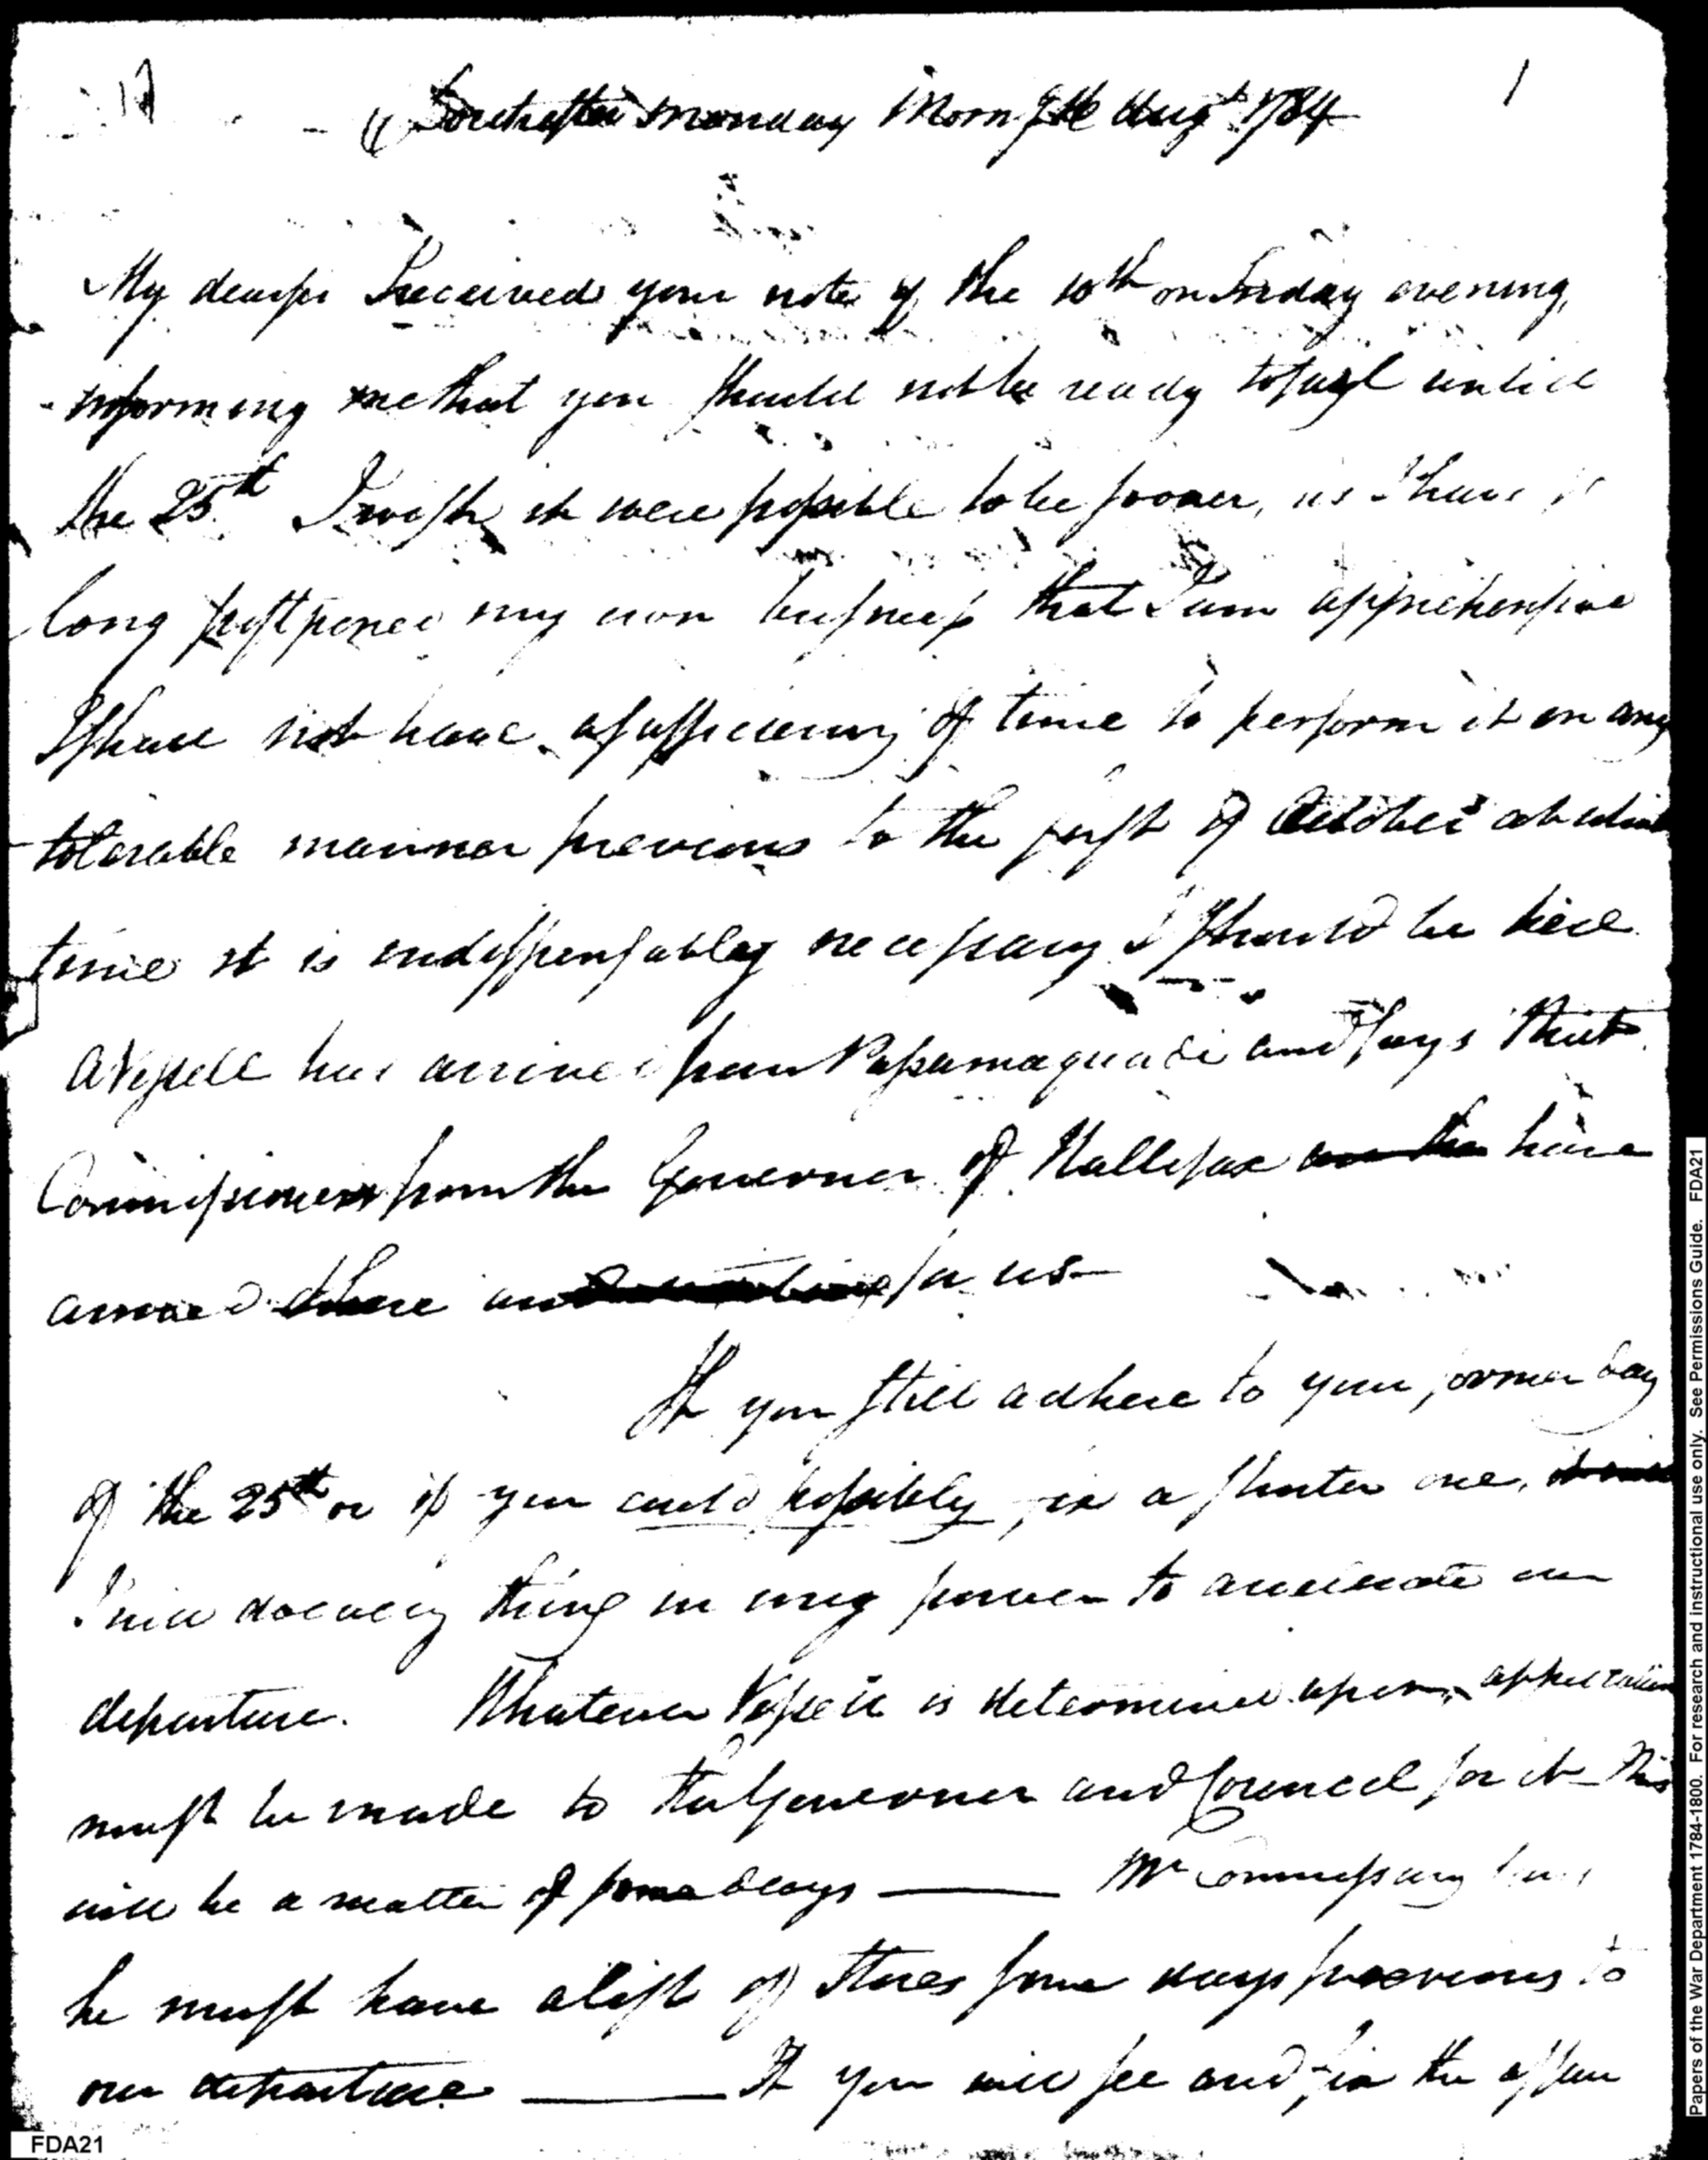 1
Dorchester Monday Morn 9th Augt 1784
My dear sir I received your note of the 10th on Friday evening,
informing me that you should not be ready to sail untill
the 25th I wish it were possible to be sooner, as I have so
long postponed my own business that I am apprehensive
I shall not have a sufficiency of time to perform it on any
tolerable manner previous to the first of October at which
time it is indispensably necessary I should be here
A Vessell has arrived from Passamaquadi and says that
Commissioners from the Governor of Hallifax are there have
arrived there and for us
If you still adhere to your former day
of the 25th or if you could possibly fix a shorter one,
I will do every thing in my power to accelerate our
departure. Whatever Vessell is determined upon, application
must be made to the Governor and Council for it This
will be a matter of some days —— Mr Commissary says
he must have a list of Stores some days previous to
our departure. —— If you will see and fix the affair
FDA21
Papers of the War Department 1784-1800. For research and instructional use only. See Permissions Guide. FDA21